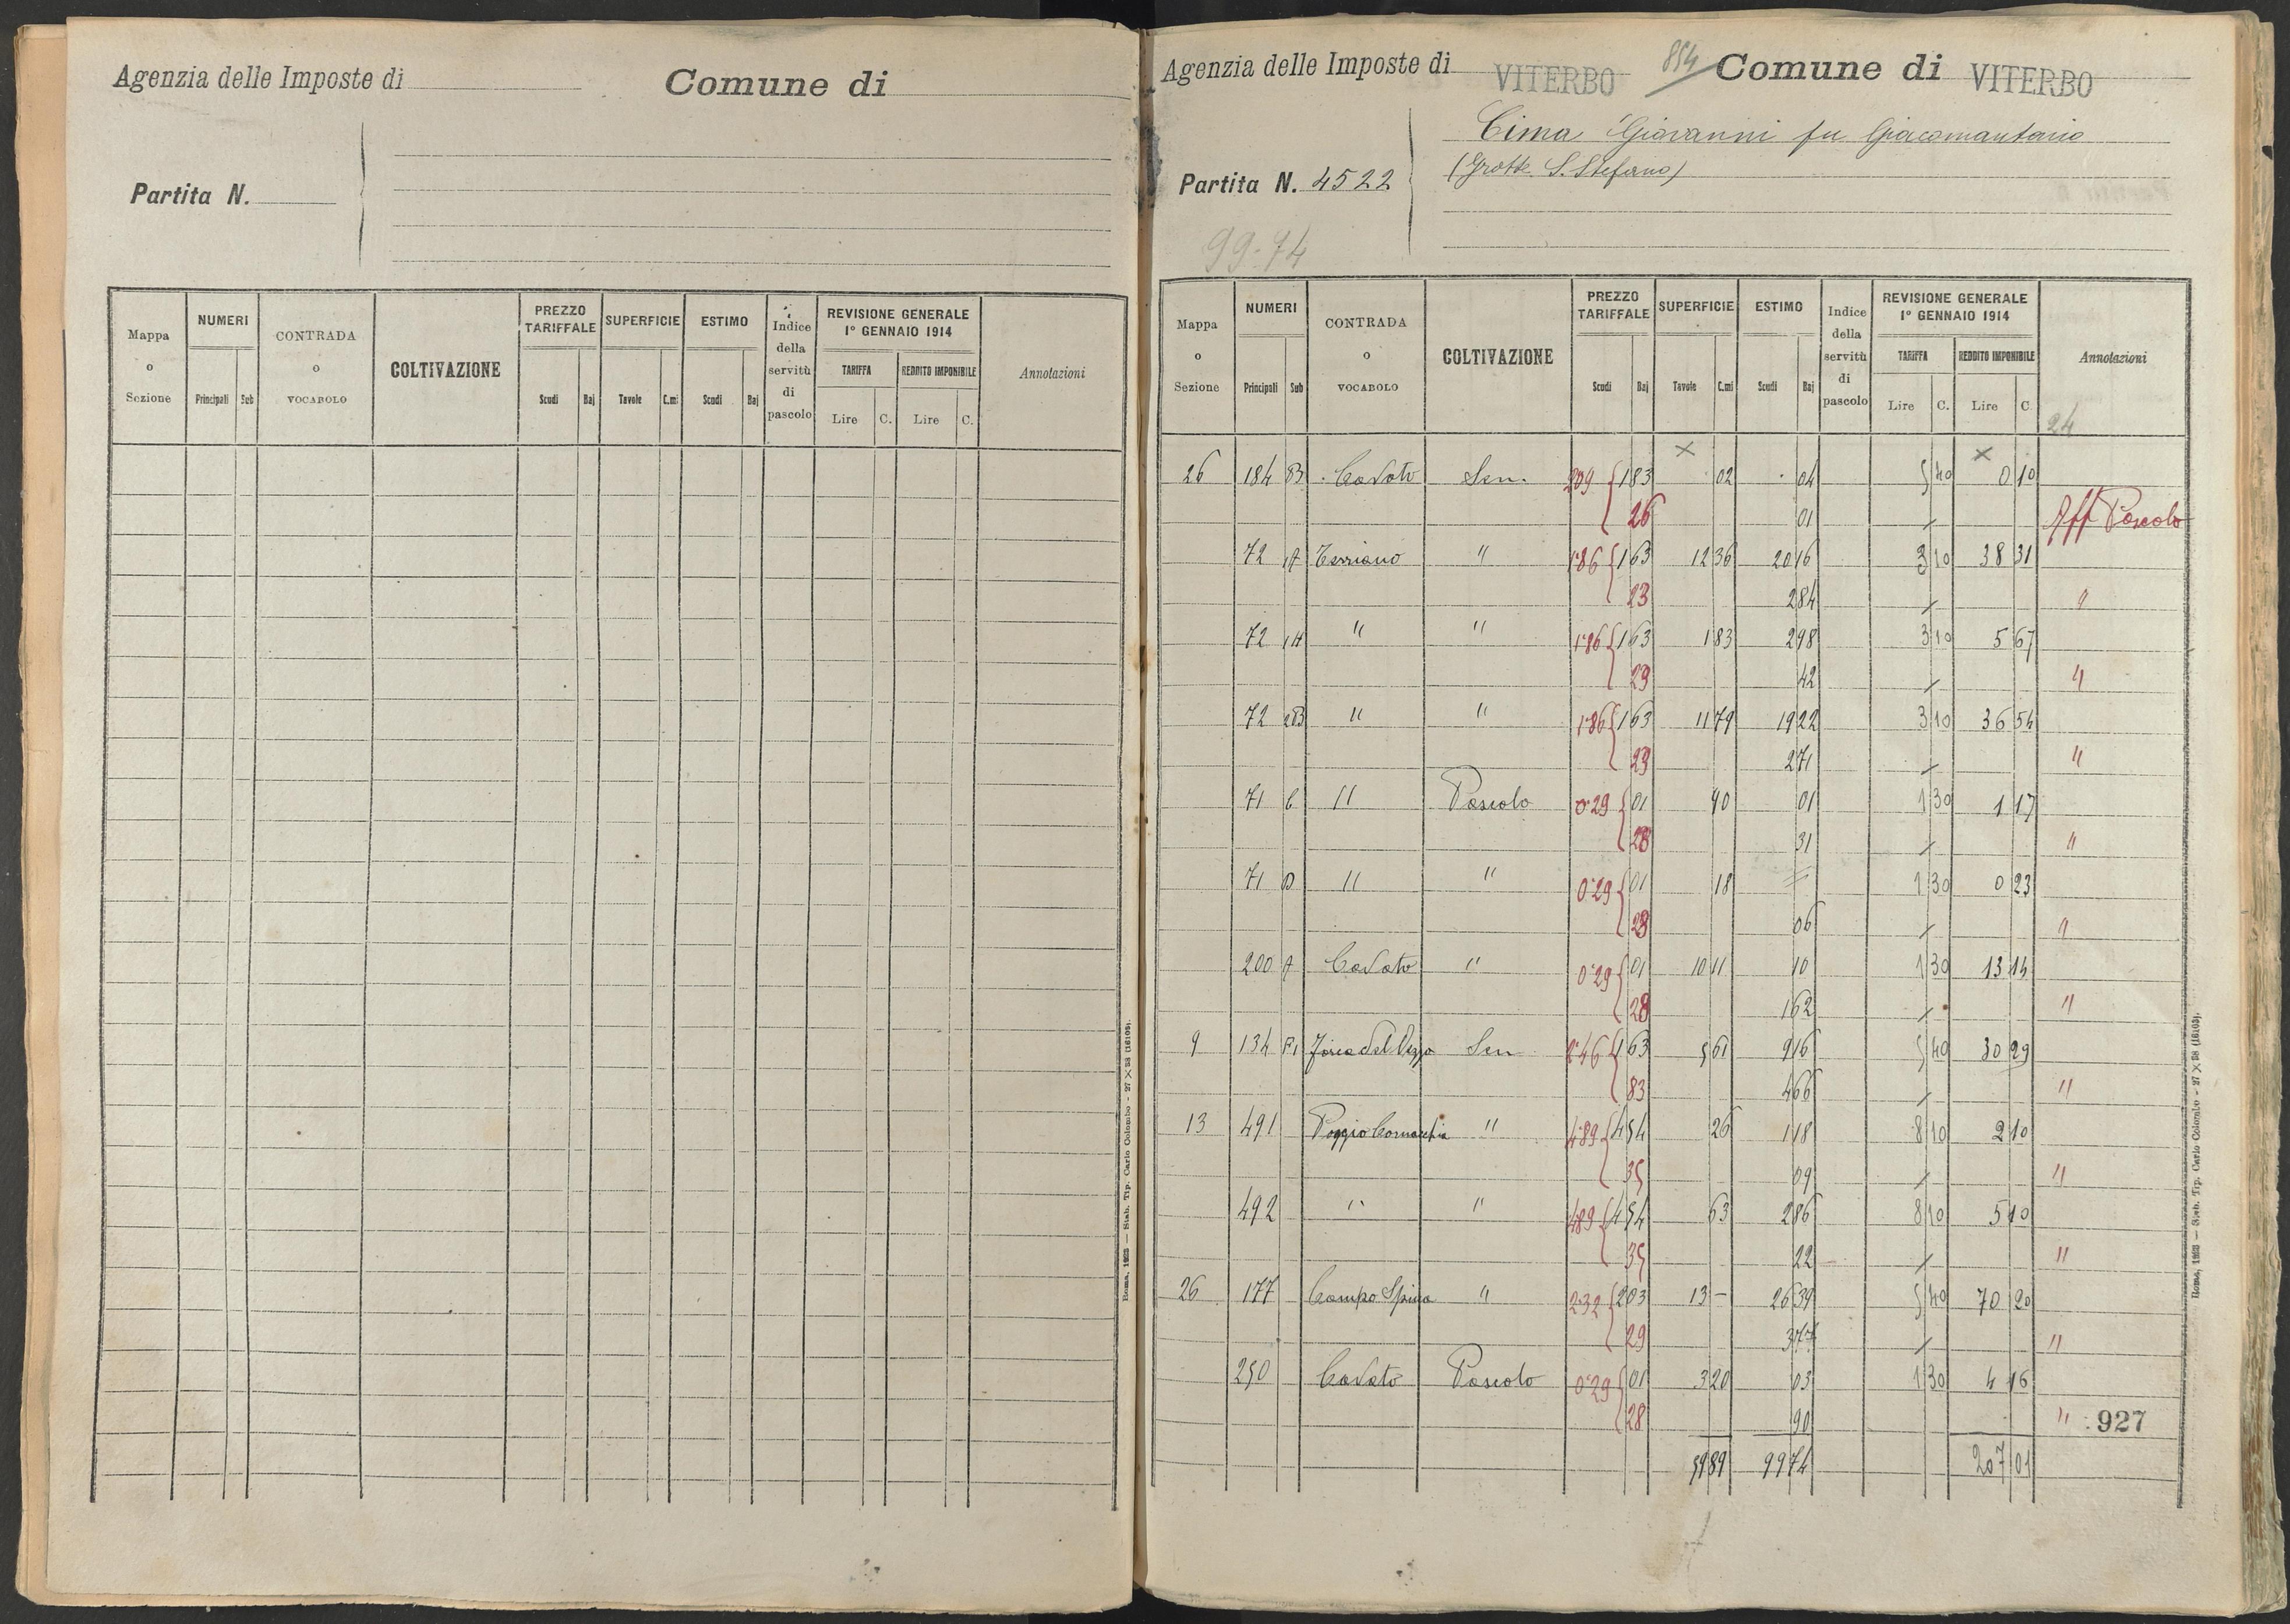 Agenzia delle Imposte di
Comune di
Partita N.
Mappa o Sezione
NUMERI
Principali Sub
CONTRADA o VOCABOLO
COLTIVAZIONE
PREZZO TARIFFALE
Scudi Baj
SUPERFICIE
Tavole C.mi
ESTIMO
Scudi Baj
Indice della servitù di pascolo
REVISIONE GENERALE 1° GENNAIO 1914
TARIFFA REDDITO IMPONIBILE
Lire C. Lire C.
Annotazioni
Roma, 1923 — Stab. Tip. Carlo Colombo - 27 × 38 (16103).
Agenzia delle Imposte di VITERBO
854
Comune di VITERBO
Cima Giovanni fu Giacomantonio
(Grotte S. Stefano)
Partita N. 4522
99-74
Mappa o Sezione
NUMERI
Principali Sub
CONTRADA o VOCABOLO
COLTIVAZIONE
PREZZO TARIFFALE
Scudi Baj
SUPERFICIE
Tavole C.mi
ESTIMO
Scudi Baj
Indice della servitù di pascolo
REVISIONE GENERALE 1° GENNAIO 1914
TARIFFA REDDITO IMPONIBILE
Lire C. Lire C.
Annotazioni
24
26 184 B3 Cavato Sem. 209 { 1 83 02 04 5 40 0 10
26 01 Aff Pascolo
72 1A Terriano " 1.86 { 1 63 12 36 20 16 3 10 38 31
23 2 84 "
72 1H " " 1.86 { 1 63 1 83 2 98 3 10 5 67
23 42 "
72 2B " " 1.86 { 1 63 11 79 19 22 3 10 36 54
23 2 71 "
71 C " Pascolo 0.29 { 01 90 01 1 30 1 17
28 31 "
71 D " " 0.29 { 01 18 1 30 0 23
28 06 "
200 A Cavato " 0.29 { 01 10 11 10 1 30 13 14
28 1 62 "
9 134 F1 Sem 2.46 { 1 63 5 61 9 16 5 40 30 29
83 4 66 "
13 491 Poggio Cornacchia " 4.89 { 4 54 26 1 18 8 10 2 10
35 09 "
492 " " 4.89 { 4 54 63 2 86 8 10 5 10
35 22 "
26 177 Campo Spina " 2.32 { 2 03 13 - 26 39 5 40 70 20
29 3 77 "
250 Cavato Pascolo 0.29 { 01 3 20 03 1 30 4 16
28 90 " 927
59 89 99 74 207 01
Roma, 1923 — Stab. Tip. Carlo Colombo - 27 × 38 (16103).